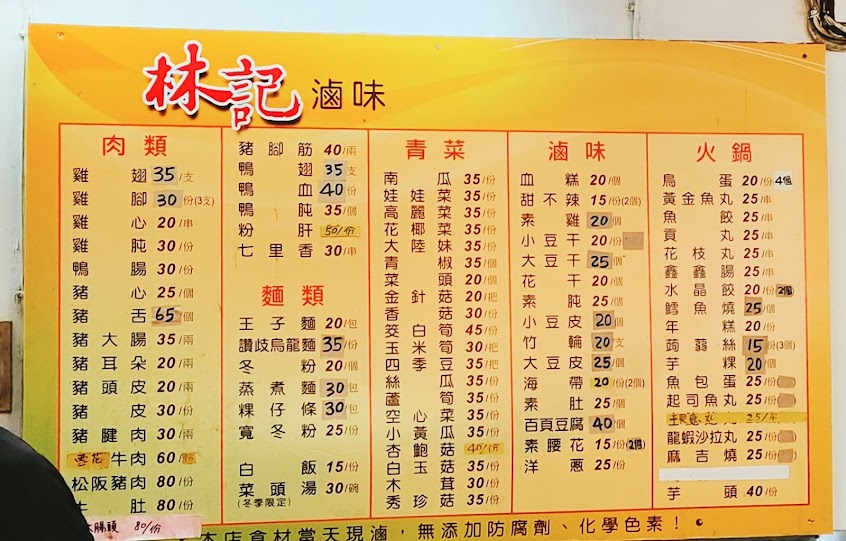 林記 滷味
肉類
雞翅 35/支
雞腳 30/份(3支)
雞心 20/串
雞肫 30/份
鴨腸 30/份
豬心 25/個
豬舌 65/個
豬大腸 35/兩
豬耳朵 20/兩
豬頭皮 20/兩
豬皮 30/份
豬腱肉 30/兩
雪花牛肉 60/
松阪豬肉 80/份
牛肚 80/份
腸頭 80/份
豬腳筋 40/兩
鴨翅 35/支
鴨血 40/份
鴨肫 35/個
粉肝 50/份
七里香 30/串
麵類
王子麵 20/包
讚歧烏龍麵 35/份
冬粉 20/個
蒸煮麵 30/包
粿仔條 30/包
寬冬粉 25/份
白飯 15/份
菜頭湯 30/碗
(冬季限定)
青菜
南瓜 35/份
娃娃菜 35/份
高麗菜 35/份
花椰菜 35/份
大陸妹 35/份
青椒 35/個
菜頭 20/個
金針菇 20/把
香菇 30/份
筊白筍 45/份
玉米筍 30/把
四季豆 35/把
絲瓜 35/份
蘆筍 35/份
空心菜 35/份
小黃瓜 35/份
杏鮑菇 40/份
白玉菇 35/份
木茸 30/份
秀珍菇 35/份
滷味
血糕 20/個
甜不辣 15/份(2個)
素雞 20/個
小豆干 20/份
大豆干 25/個
花干 20/個
素肫 25/個
小豆皮 20/個
竹輪 20/支
大豆皮 25/個
海帶 20/份(2個)
素肚 25/個
百頁豆腐 40/個
素腰花 15/份(2個)
洋蔥 25/份
火鍋
鳥蛋 20/份 4個
黃金魚丸 25/串
魚餃 25/串
貢丸 25/串
花枝丸 25/串
鑫鑫腸 25/串
水晶餃 20/份(2個)
鱈魚燒 25/個
年糕 20/份
蒟蒻絲 15/份(3個)
芋粿 20/個
魚包蛋 25/份
起司魚丸 25/份
25/份
龍蝦沙拉丸 25/份
麻吉燒 25/份
芋頭 40/份
本店食材當天現滷，無添加防腐劑、化學色素！